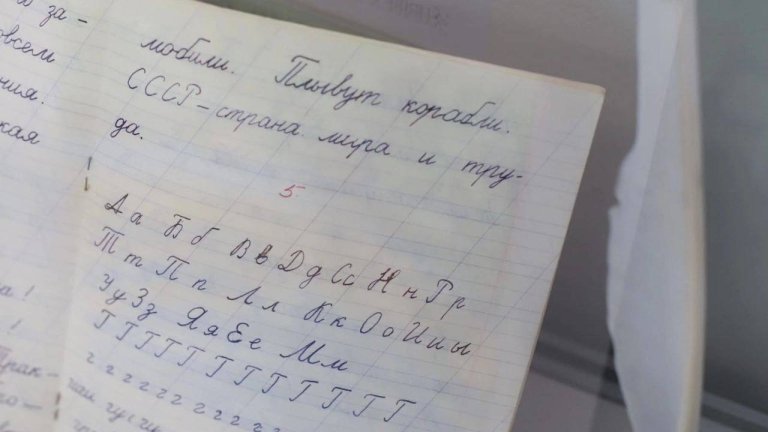 за-
овсем
ния.
кая
а!
!
мобили. Плывут корабли.
СССР – страна мира и тру-
да.
5
Аа Бб Вв Дд Сс Нн Рр
Тт Пп Лл Кк Оо Ии ы
Уу Зз Яя Ее Мм
Г Г Г Г Г Г Г Г Г Г Г
г г г г г г г г г г